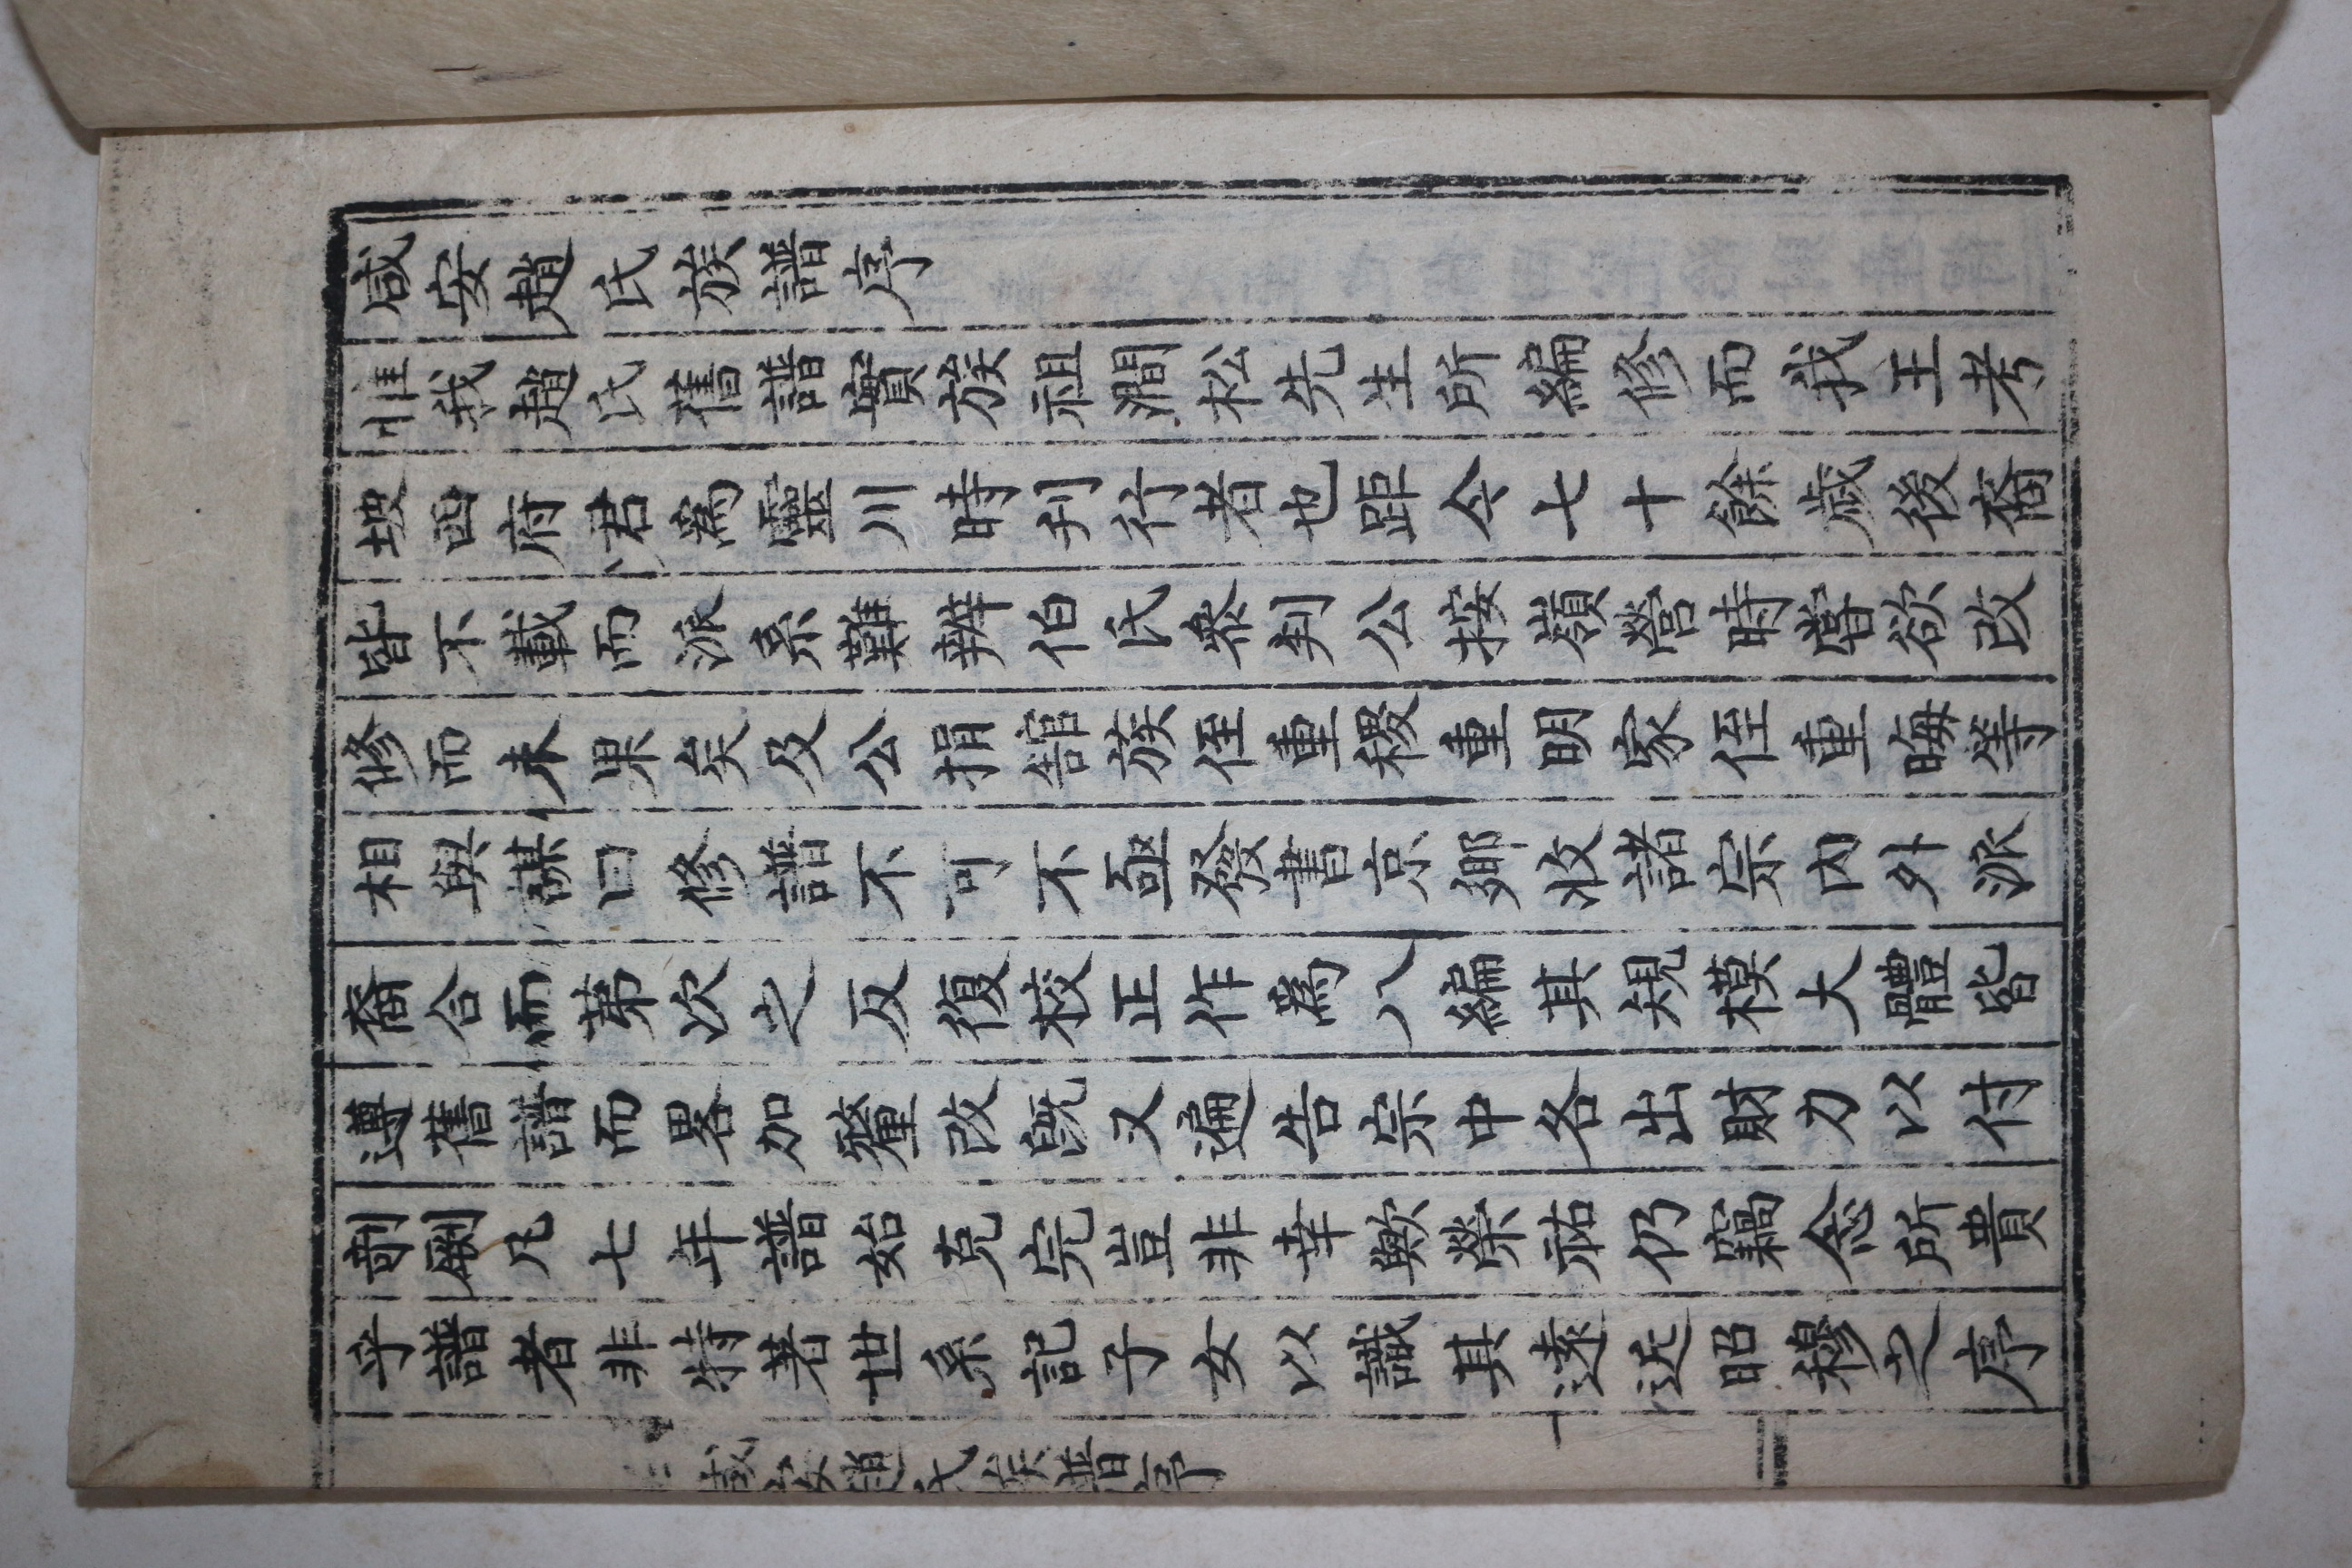 咸安趙氏族譜序
惟我趙氏舊譜實族祖澗松先生所編修而我王考
坡西府君爲靈川時刋行者也距今七十餘歲後裔
皆不載而派系難辨伯氏叅判公按嶺營時嘗欲改
修而未果矣及公捐舘族侄重稷重明家侄重晦等
相與謀曰修譜不可不亟發書京鄉收諸宗內外派
裔合而第次之反復校正作爲八編其規模大體皆
遵舊譜而畧加釐改旣又遍告宗中各出財力以付
剞劂凡七年譜始克完豈非幸歟榮祏仍竊念所貴
乎譜者非特著世系記子女以識其遠近昭穆之序
咸安趙氏族譜序